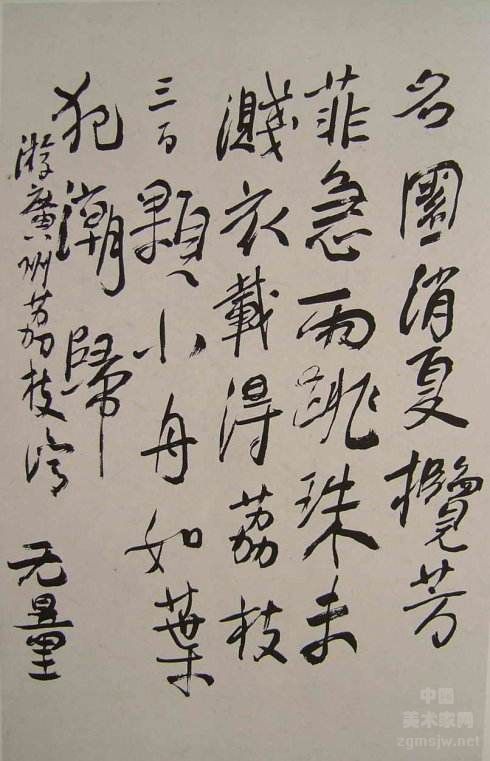 名園消夏欖芳
菲急雨跳珠未
濺衣載得荔枝
三百顆小舟如葉
犯潮歸
游廣州荔枝灣 无量
中国
美术家网
zgmsjw.net